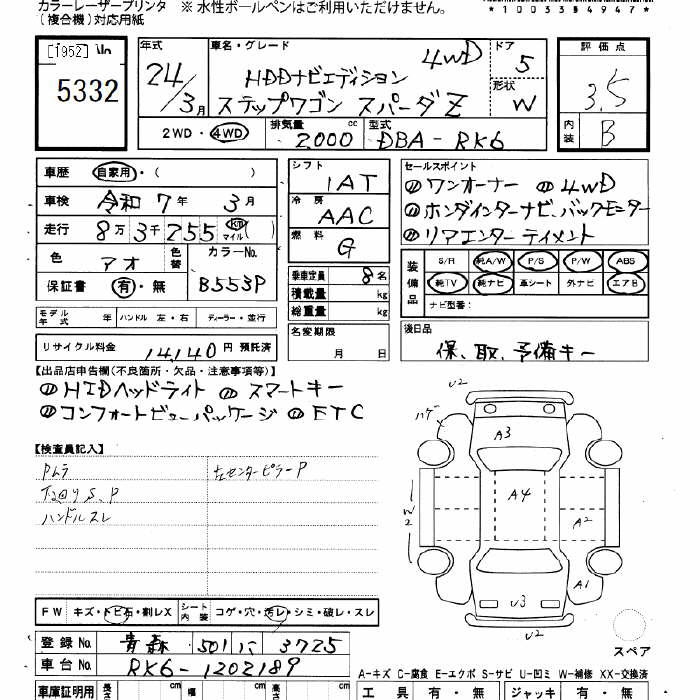 カラーレーザープリンタ ※ 水性ボールペンはご利用いただけません。
(複合機)対応用紙
*1003354947*
[1952]
5332
年式 24/3月
車名・グレード HDDナビエディション 4WD
ステップワゴン スパーダZ
ドア 5
形状 W
評価点 3.5
内装 B
2WD・4WD 排気量 2000 cc 型式 DBA-RK6
車歴 自家用・( )
車検 令和7年 3月
走行 8万3千255 km マイル ( )
色 アオ 色替 カラーNo. B553P
保証書 有・無
モデル年式 年 ハンドル 左・右 ディーラー・並行
リサイクル料金 14,140円 預託済
シフト IAT
冷房 AAC
燃料 G
乗車定員 8名
積載量 kg
総重量 kg
名変期限 月 日
セールスポイント
①ワンオーナー ①4WD
①ホンダインターナビ、バックモニター
①リアエンターテイメント
装備品 S/H 純A/W P/S P/W ABS
純TV 純ナビ 革シート 外ナビ エアB
ナビ型番:
後日品
保、取、予備キー
【出品店申告欄(不良箇所・欠品・注意事項等)】
①HIDヘッドライト ①スマートキー
①コンフォートビューパッケージ ①ETC
【検査員記入】
Pムラ 左センターピラーP
ハンドルスレ
U2
ハゲ
A3
A4
W2
A2
A1
U3
U2
スペア
FW キズ・トビ石・割レX シート内装 コゲ・穴・汚レ・シミ・破レ・スレ
登録No. 青森 501 に 3725
車台No. RK6-1202189
A-キズ C-腐食 E-エクボ S-サビ U-凹ミ W-補修 XX-交換済
車庫証明用 長さ cm 幅 cm 高さ cm
工具 有・無 ジャッキ 有・無